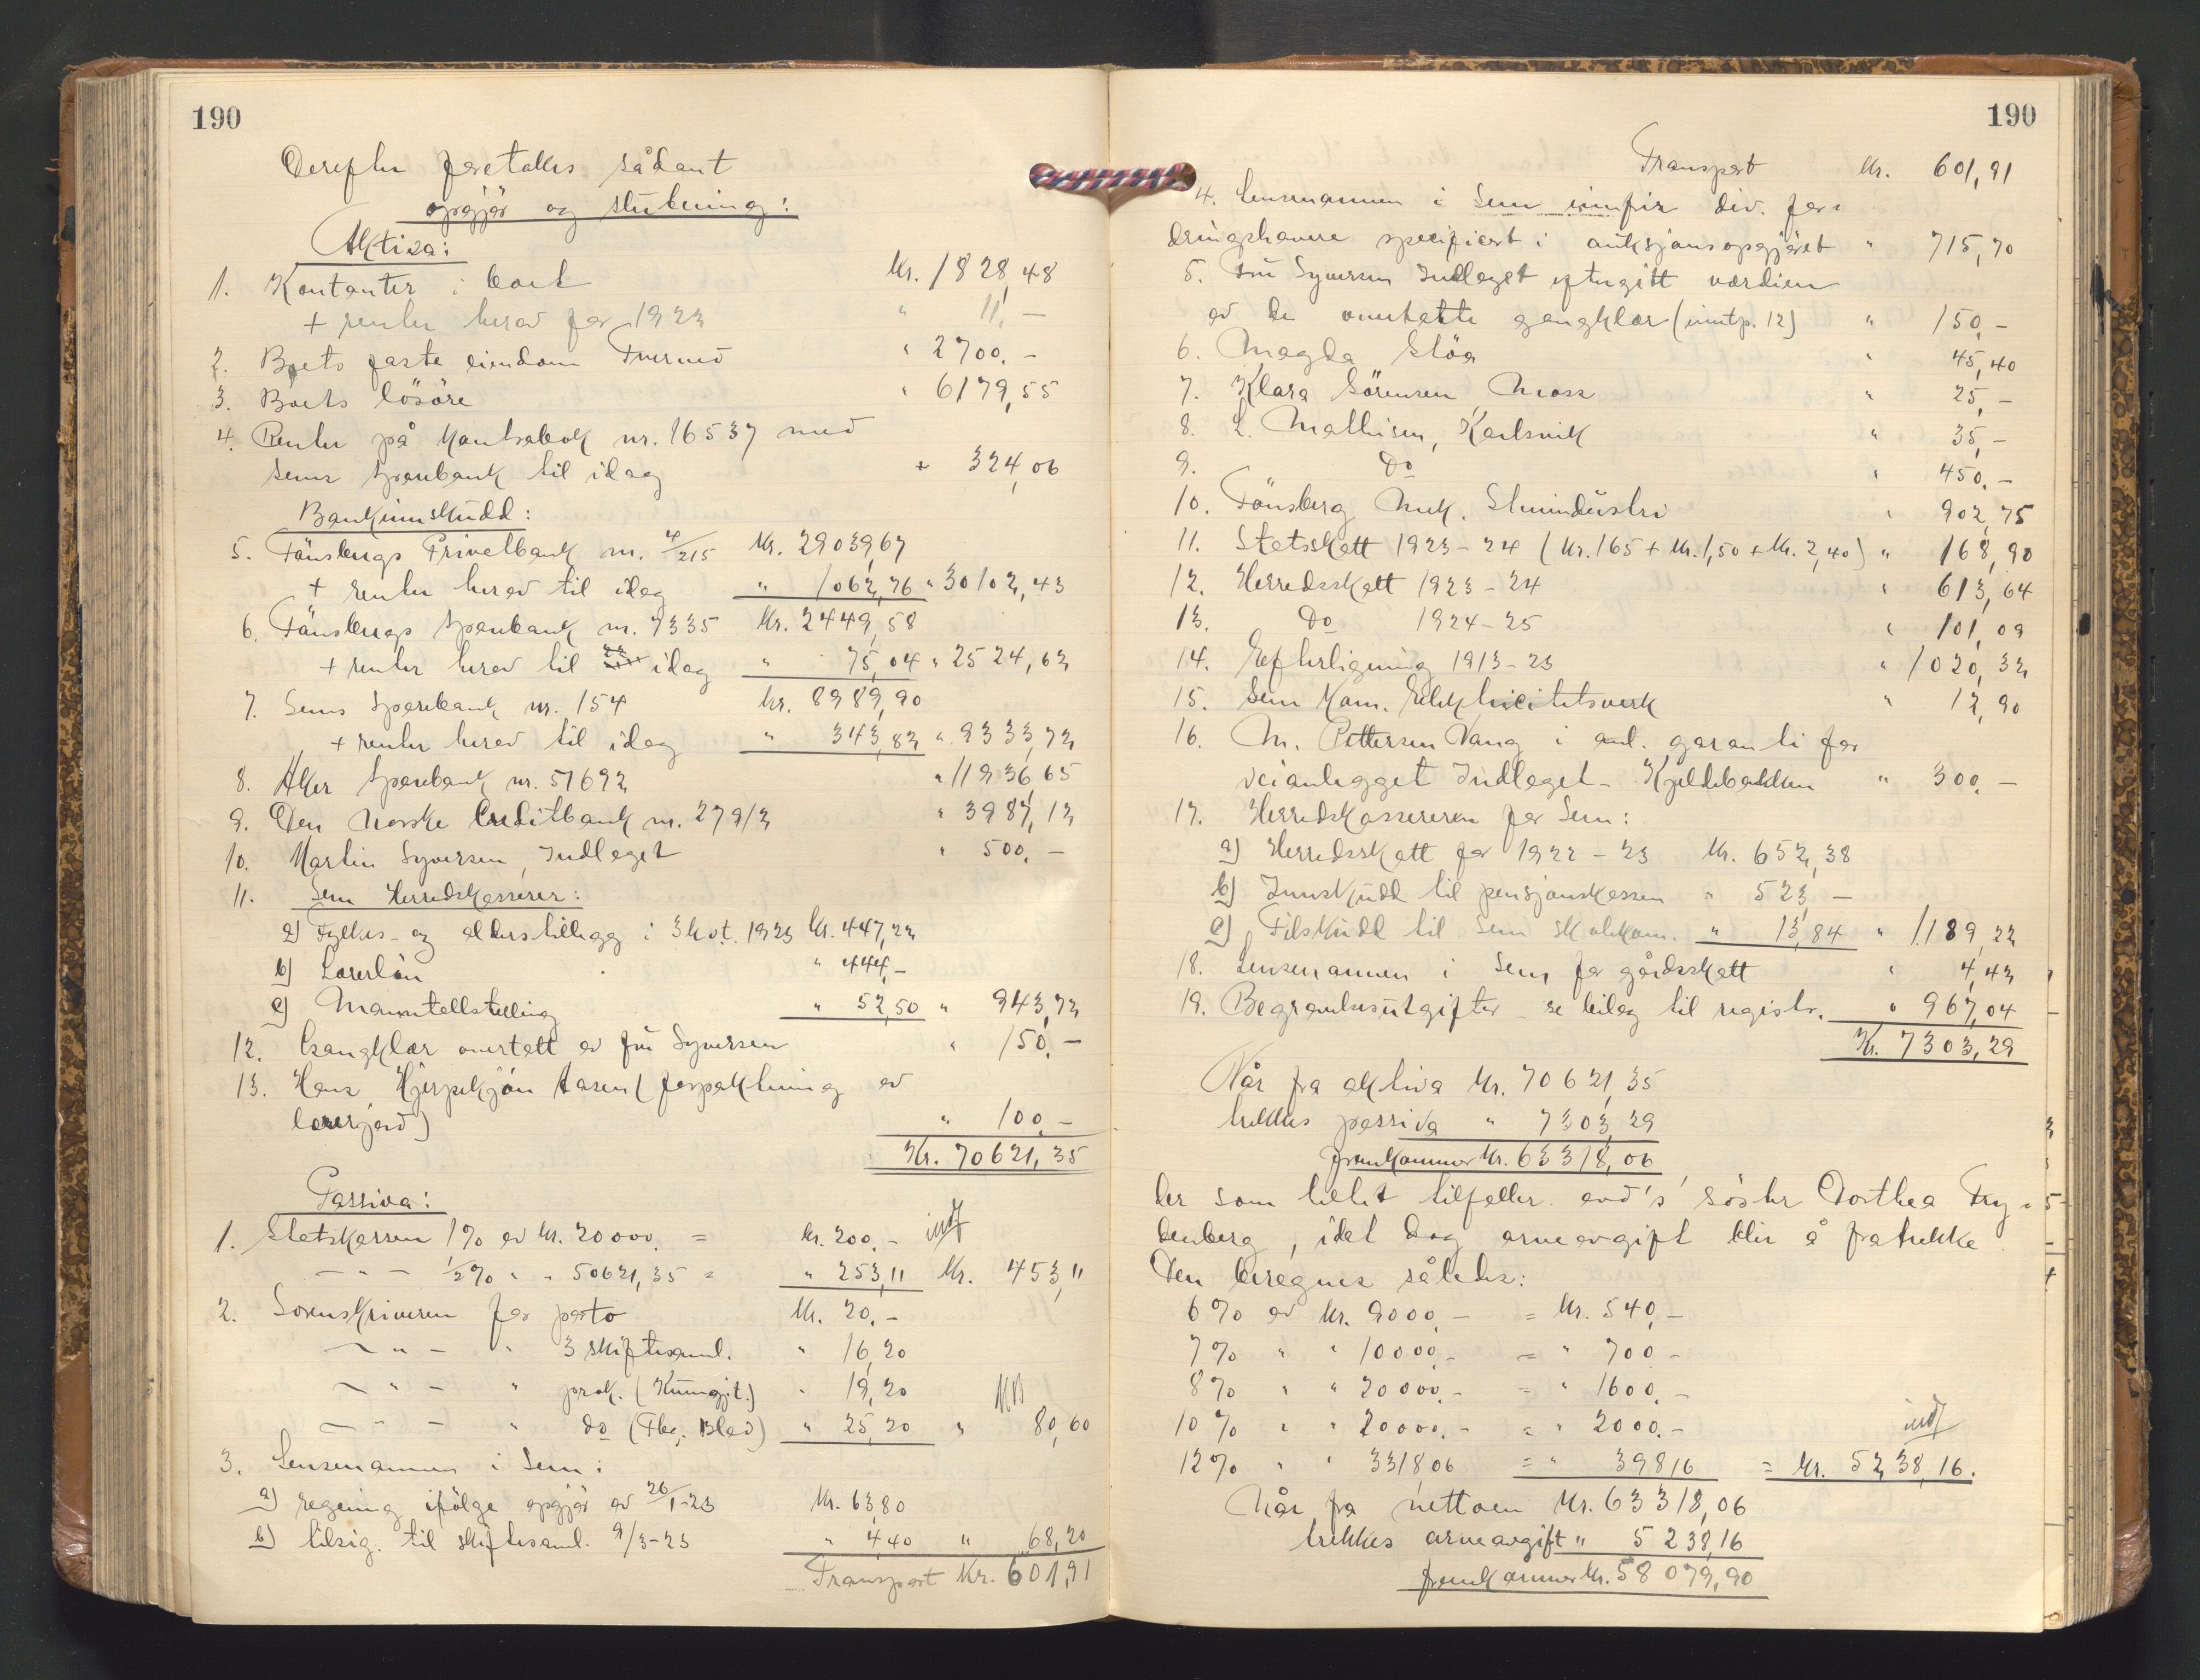 190
Derefter foretokes sådant
opgjör og slutning:
Aktiva:
1. Kontanter i boet Kr. 1828,48
+ renter herav for 1923 " 11,-
2. Boets faste eiendom Furumo " 2700.-
3. Boets lösöre " 6179,55
4. Renter på kontrabok nr. 16537 med
Sems sparebank til idag + 324,06
Bankinnskudd:
5. Tönsbergs Privatbank nr. 4/215 Kr. 29039,67
+ renter herav til idag " 1062,76 " 30102,43
6. Tönsbergs sparebank nr. 7335 Kr. 2449,58
+ renter herav til idag " 75,04 " 2524,62
7. Sems sparebank nr. 154 kr. 8989,90
+ renter herav til idag " 343,82 " 9333,72
8. Aker sparebank nr. 51692 " 11936,65
9. Den norske Creditbank nr. 27912 " 3987,12
10. Martin Syversen, Indlaget " 500.-
11. Sem Herredskasserer:
a) Fylkes- og alderstillegg i 3 kvt. 1923 Kr. 447,22
b) Lærerlön " 444,-
c) Manntallstelling " 52,50 " 943,72
12. Gangklær overtatt av fru Syversen " 150.-
13. Hans Hjerpekjön Aasen (forpaktning av
lærerjord) " 100.-
Kr. 70621,35
Passiva:
1. Statskassen 1% av kr. 20000. = kr. 200.- indf
— " — 1/2% " " 50621,35 = " 253,11 Kr. 453,11
2. Sorenskriveren for porto Kr. 20.-
— " — " 3 skiftesaml. " 16,20
— " — " prok. (Kunngjt.) " 19,20
— " — " do (Tbg. Blad) " 25,20 " 80,60
3. Lensmannen i Sem:
a) regning ifölge opgjör av 26/1-23 Kr. 63,80
b) tilsig. til skiftesaml. 9/3-23 " 4,40 " 68,20
Transport Kr. 601,91
190
Transport Kr. 601,91
4. Lensmannen i Sem innfir div. for=
dringshavere specificert i auksjonsopgjöret " 715,70
5. Fru Syversen Indlaget eftergitt værdien
av de overtatte gangklær (inntp. 12) " 150,-
6. Magda Slöa " 45,40
7. Klara Sörensen Moss " 25,-
8. L. Mathisen, Karlsvik " 35,-
9. Do " 450.-
10. Tönsberg Mek. Stenindustri " 902,75
11. Statsskatt 1923-24 (Kr. 165 + Kr. 1,50 + Kr. 2,40) " 168,90
12. Herredsskatt 1923-24 " 613,64
13. Do 1924-25 " 101,09
14. Efterligning 1913-23 " 1020,32
15. Sem kom. Elektricitetsverk " 12,90
16. M. Pettersen Vang i anl. garanti for
veianlegget Indlaget - Kjeldebakken " 300.-
17. Herredskassereren for Sem:
a) Herredsskatt for 1922-23 Kr. 652,38
b) Innskudd til pensjonskassen " 523,-
c) Tilskudd til Sem skolekom. " 13,84 " 1189,22
18. Lensmannen i Sem for gårdsskatt " 4,42
19. Begravelsesutgifter - se bilag til registr. " 967,04
Kr. 7303,29
Når fra aktiva Kr. 70621,35
trekkes passiva " 7303,29
fremkommer Kr. 63318,06
der som tillet tilfeller avd's söster Dorthea Fry=
denberg, idet dog arveavgift blir å fratrekke.
Den beregnes således:
6% av kr. 9000,- = Kr. 540,-
7% " " 10000,- = " 700.-
8% " " 20000,- = " 1600.-
10% " " 20000.- = " 2000.- indf
12% " " 3318,06 = " 398,16 = Kr. 5238,16.
Når fra nettoen Kr. 63318,06
trekkes arveavgift " 5238,16
fremkommer Kr. 58079,90